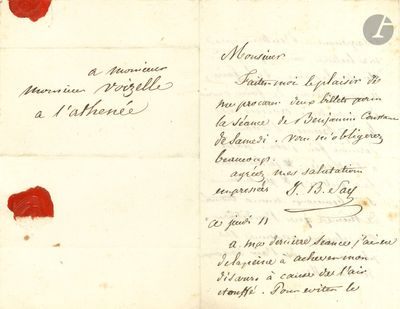 a monsieur
monsieur voizelle
a l'athenée
Monsieur
Faites moi le plaisir de
me procurer deux billets pour
la séance de Benjamin Constant
de Samedi. vous m'obligerez
beaucoup.
agréez mes salutations
empressées J. B. Say
ce jeudi 11
a ma dernière séance j'ai eu
de la peine à achever mon
discours à cause de l'air
etouffé. Pour eviter le